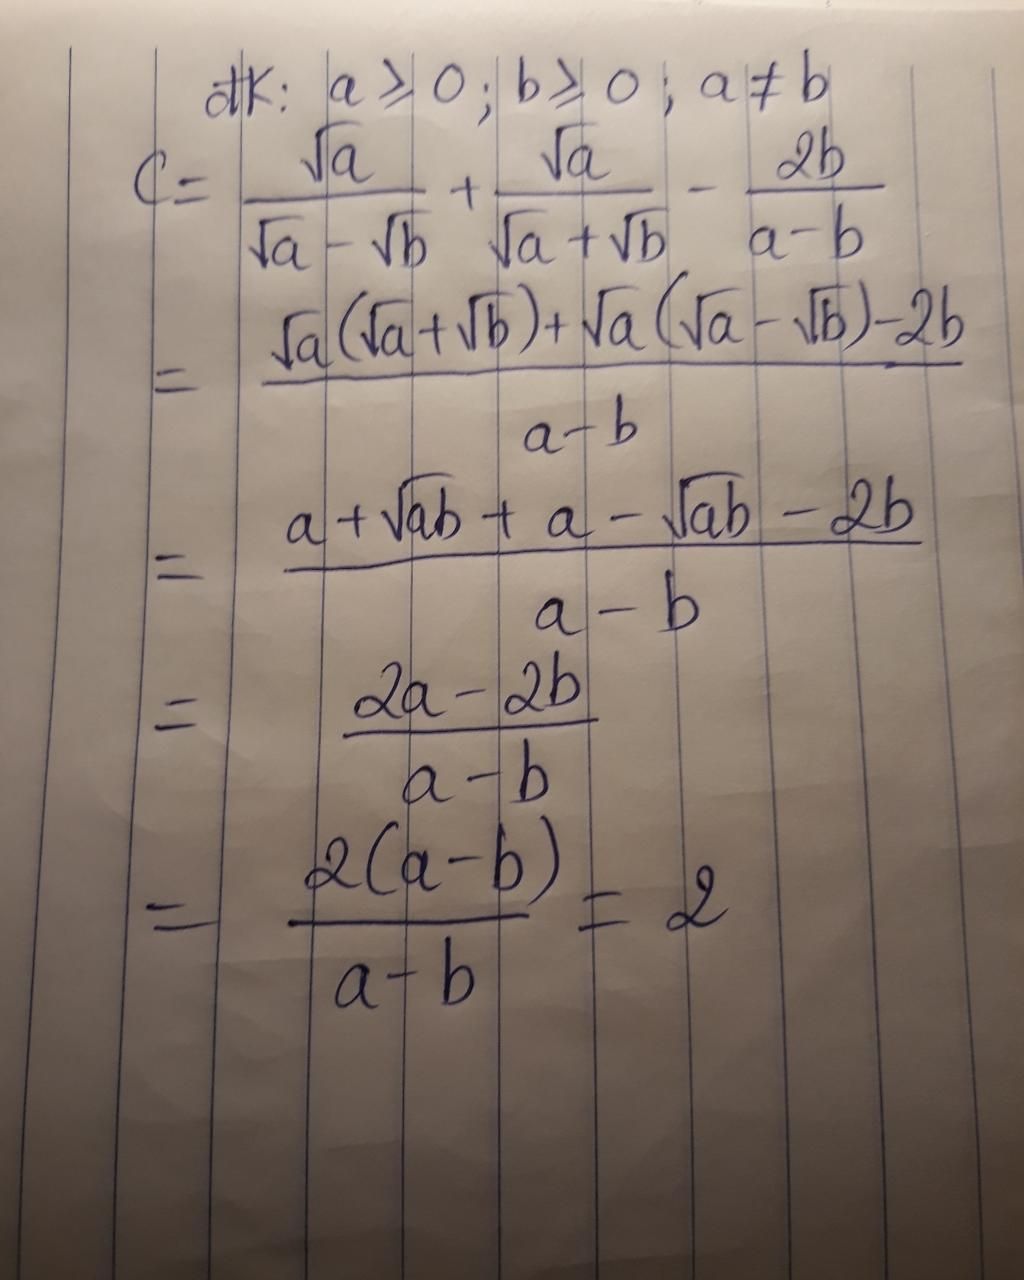 đK: a ≥ 0 ; b ≥ 0 ; a ≠ b
C = √a/(√a - √b) + √a/(√a + √b) - 2b/(a - b)
= (√a(√a + √b) + √a(√a - √b) - 2b)/(a - b)
= (a + √ab + a - √ab - 2b)/(a - b)
= (2a - 2b)/(a - b)
= 2(a - b)/(a - b) = 2